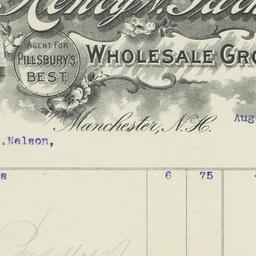 Henry W. Par
AGENT FOR
PILLSBURY'S
BEST.
WHOLESALE GRO
Manchester, N.H.
Aug
.Nelson,
s 6 75